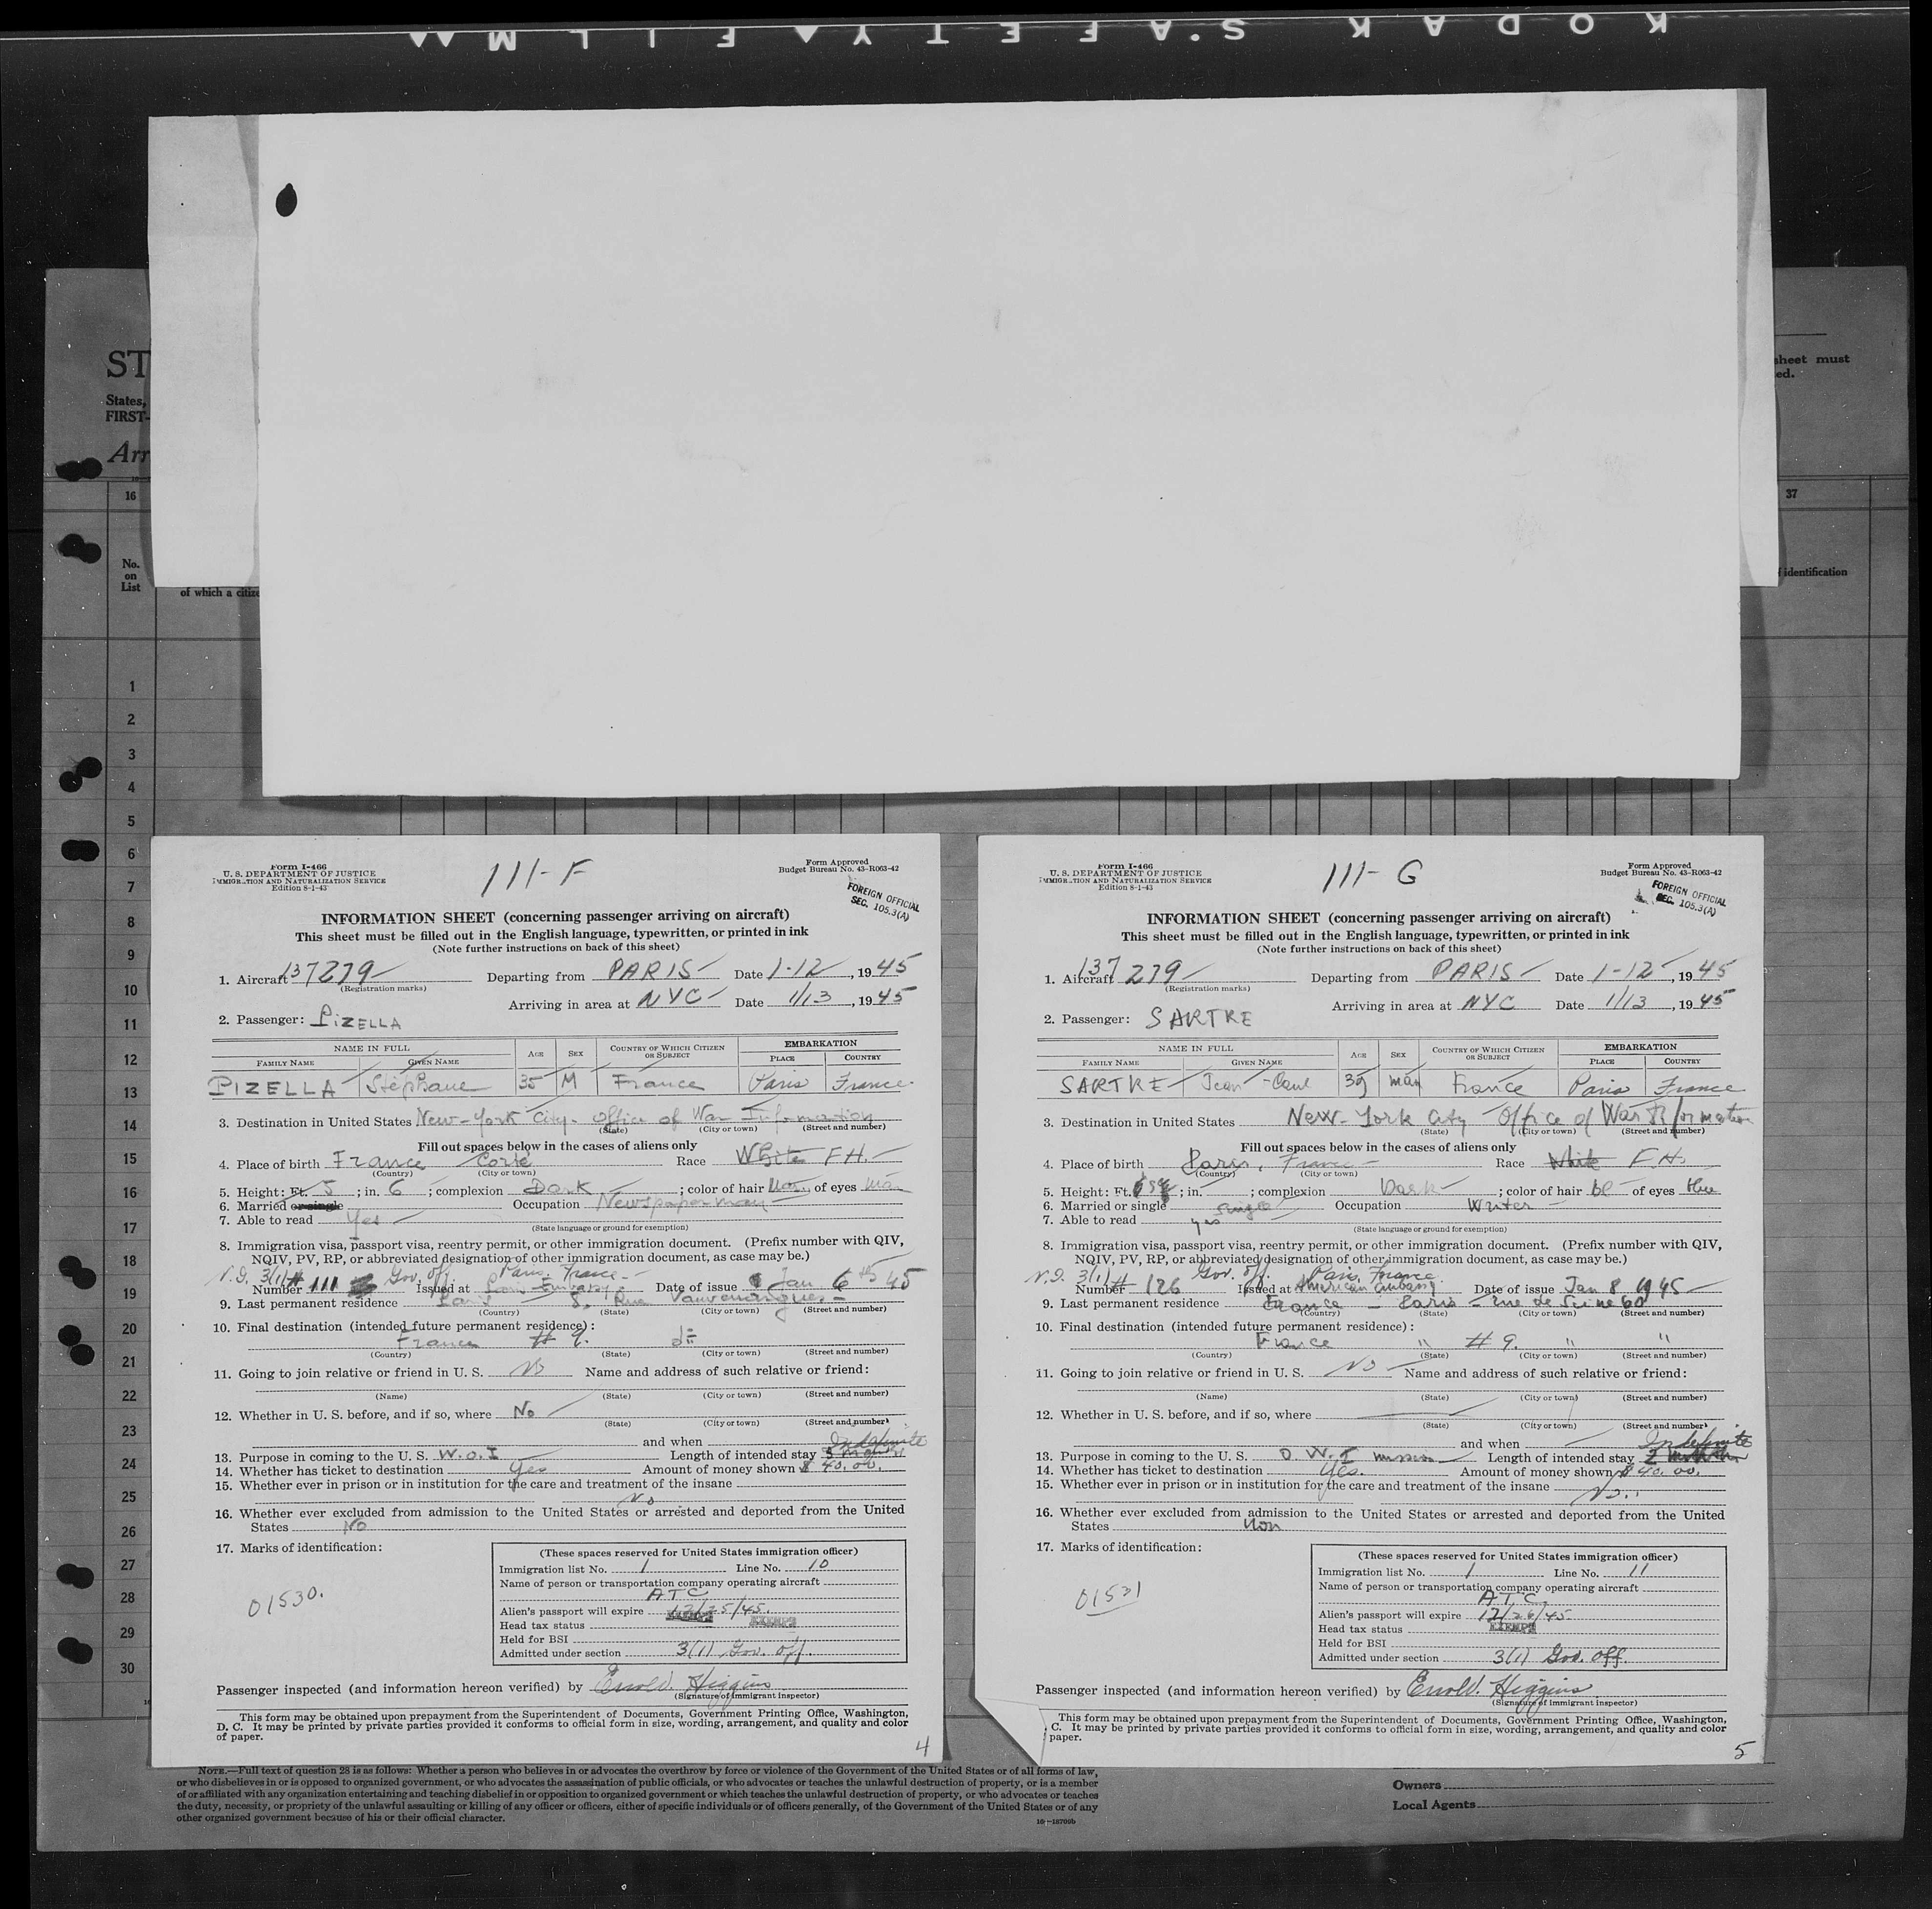 KODAK SAFETY FILM
ST
States,
FIRST-
Arr
sheet must
ed.
16
37
No.
on
List
of which a citize
identification
1
2
3
4
5
6
7
8
9
10
11
12
13
14
15
16
17
18
19
20
21
22
23
24
25
26
27
28
29
30
Form I-466
U. S. DEPARTMENT OF JUSTICE
IMMIGRATION AND NATURALIZATION SERVICE
Edition 8-1-43
111-F
Form Approved
Budget Bureau No. 43-R063-42
FOREIGN OFFICIAL
SEC. 105.3(A)
INFORMATION SHEET (concerning passenger arriving on aircraft)
This sheet must be filled out in the English language, typewritten, or printed in ink
(Note further instructions on back of this sheet)
1. Aircraft 137279 Departing from PARIS Date 1-12, 1945
(Registration marks)
Arriving in area at NYC Date 1/13, 1945
2. Passenger: PIZELLA
NAME IN FULL AGE SEX COUNTRY OF WHICH CITIZEN OR SUBJECT EMBARKATION
FAMILY NAME GIVEN NAME PLACE COUNTRY
PIZELLA Stéphane 35 M France Paris France
3. Destination in United States New-York City. Office of War Information
(State) (City or town) (Street and number)
Fill out spaces below in the cases of aliens only
4. Place of birth France Corté Race White FH.
(Country) (City or town)
5. Height: Ft. 5; in. 6; complexion Dark; color of hair of eyes
6. Married or single Occupation Newspaperman
7. Able to read Yes
(State language or ground for exemption)
8. Immigration visa, passport visa, reentry permit, or other immigration document. (Prefix number with QIV,
NQIV, PV, RP, or abbreviated designation of other immigration document, as case may be.)
3/1) # Gov. off Paris, France
Number 111 Issued at Embassy Date of issue Jan 6th 45
9. Last permanent residence Paris 8, Rue Vauvenargues
(Country) (State) (City or town) (Street and number)
10. Final destination (intended future permanent residence):
France # 9. d°
(Country) (State) (City or town) (Street and number)
11. Going to join relative or friend in U. S. No Name and address of such relative or friend:
(Name) (State) (City or town) (Street and number)
12. Whether in U. S. before, and if so, where No
(State) (City or town) (Street and number)
and when
Indefinite
13. Purpose in coming to the U. S. W.O.I Length of intended stay
14. Whether has ticket to destination Yes Amount of money shown $ 40.00.
15. Whether ever in prison or in institution for the care and treatment of the insane
No
16. Whether ever excluded from admission to the United States or arrested and deported from the United
States No
17. Marks of identification:
01530.
(These spaces reserved for United States immigration officer)
Immigration list No. 1 Line No. 10
Name of person or transportation company operating aircraft
ATC
Alien's passport will expire 12/25/45.
Head tax status EXEMPT
Held for BSI
Admitted under section 3(1) Gov. Off.
Passenger inspected (and information hereon verified) by Errol V. Higgins
(Signature of immigrant inspector)
This form may be obtained upon prepayment from the Superintendent of Documents, Government Printing Office, Washington,
D. C. It may be printed by private parties provided it conforms to official form in size, wording, arrangement, and quality and color
of paper.
4
Form I-466
U. S. DEPARTMENT OF JUSTICE
IMMIGRATION AND NATURALIZATION SERVICE
Edition 8-1-43
111-G
Form Approved
Budget Bureau No. 43-R063-42
FOREIGN OFFICIAL
SEC. 105.3(A)
INFORMATION SHEET (concerning passenger arriving on aircraft)
This sheet must be filled out in the English language, typewritten, or printed in ink
(Note further instructions on back of this sheet)
1. Aircraft 137279 Departing from PARIS Date 1-12, 1945
(Registration marks)
Arriving in area at NYC Date 1/13, 1945
2. Passenger: SARTRE
NAME IN FULL AGE SEX COUNTRY OF WHICH CITIZEN OR SUBJECT EMBARKATION
FAMILY NAME GIVEN NAME PLACE COUNTRY
SARTRE Jean-Paul 39 man France Paris France
3. Destination in United States New-York City Office of War Information
(State) (City or town) (Street and number)
Fill out spaces below in the cases of aliens only
4. Place of birth Paris, France Race White FH.
(Country) (City or town)
5. Height: Ft.; in.; complexion Dark; color of hair bl of eyes blue
6. Married or single single Occupation Writer
7. Able to read yes
(State language or ground for exemption)
8. Immigration visa, passport visa, reentry permit, or other immigration document. (Prefix number with QIV,
NQIV, PV, RP, or abbreviated designation of other immigration document, as case may be.)
3/1) # Gov. off. Paris, France
Number 126 Issued at American Embassy Date of issue Jan 8 1945
9. Last permanent residence France - Paris - rue de Seine 60
(Country) (State) (City or town) (Street and number)
10. Final destination (intended future permanent residence):
France " # 9. " "
(Country) (State) (City or town) (Street and number)
11. Going to join relative or friend in U. S. No Name and address of such relative or friend:
(Name) (State) (City or town) (Street and number)
12. Whether in U. S. before, and if so, where
(State) (City or town) (Street and number)
and when
Indefinite
13. Purpose in coming to the U. S. O.W.I mission Length of intended stay 2
14. Whether has ticket to destination Yes. Amount of money shown $ 40.00.
15. Whether ever in prison or in institution for the care and treatment of the insane
No.
16. Whether ever excluded from admission to the United States or arrested and deported from the United
States Non
17. Marks of identification:
01531
(These spaces reserved for United States immigration officer)
Immigration list No. 1 Line No. 11
Name of person or transportation company operating aircraft
ATC
Alien's passport will expire 12/26/45
Head tax status EXEMPT
Held for BSI
Admitted under section 3(1) Gov. Off.
Passenger inspected (and information hereon verified) by Errol V. Higgins
(Signature of immigrant inspector)
This form may be obtained upon prepayment from the Superintendent of Documents, Government Printing Office, Washington,
C. It may be printed by private parties provided it conforms to official form in size, wording, arrangement, and quality and color
paper.
5
NOTE.—Full text of question 28 is as follows: Whether a person who believes in or advocates the overthrow by force or violence of the Government of the United States or of all forms of law,
or who disbelieves in or is opposed to organized government, or who advocates the assassination of public officials, or who advocates or teaches the unlawful destruction of property, or is a member
of or affiliated with any organization entertaining and teaching disbelief in or opposition to organized government or which teaches the unlawful destruction of property, or who advocates or teaches
the duty, necessity, or propriety of the unlawful assaulting or killing of any officer or officers, either of specific individuals or of officers generally, of the Government of the United States or of any
other organized government because of his or their official character.
Owners
Local Agents